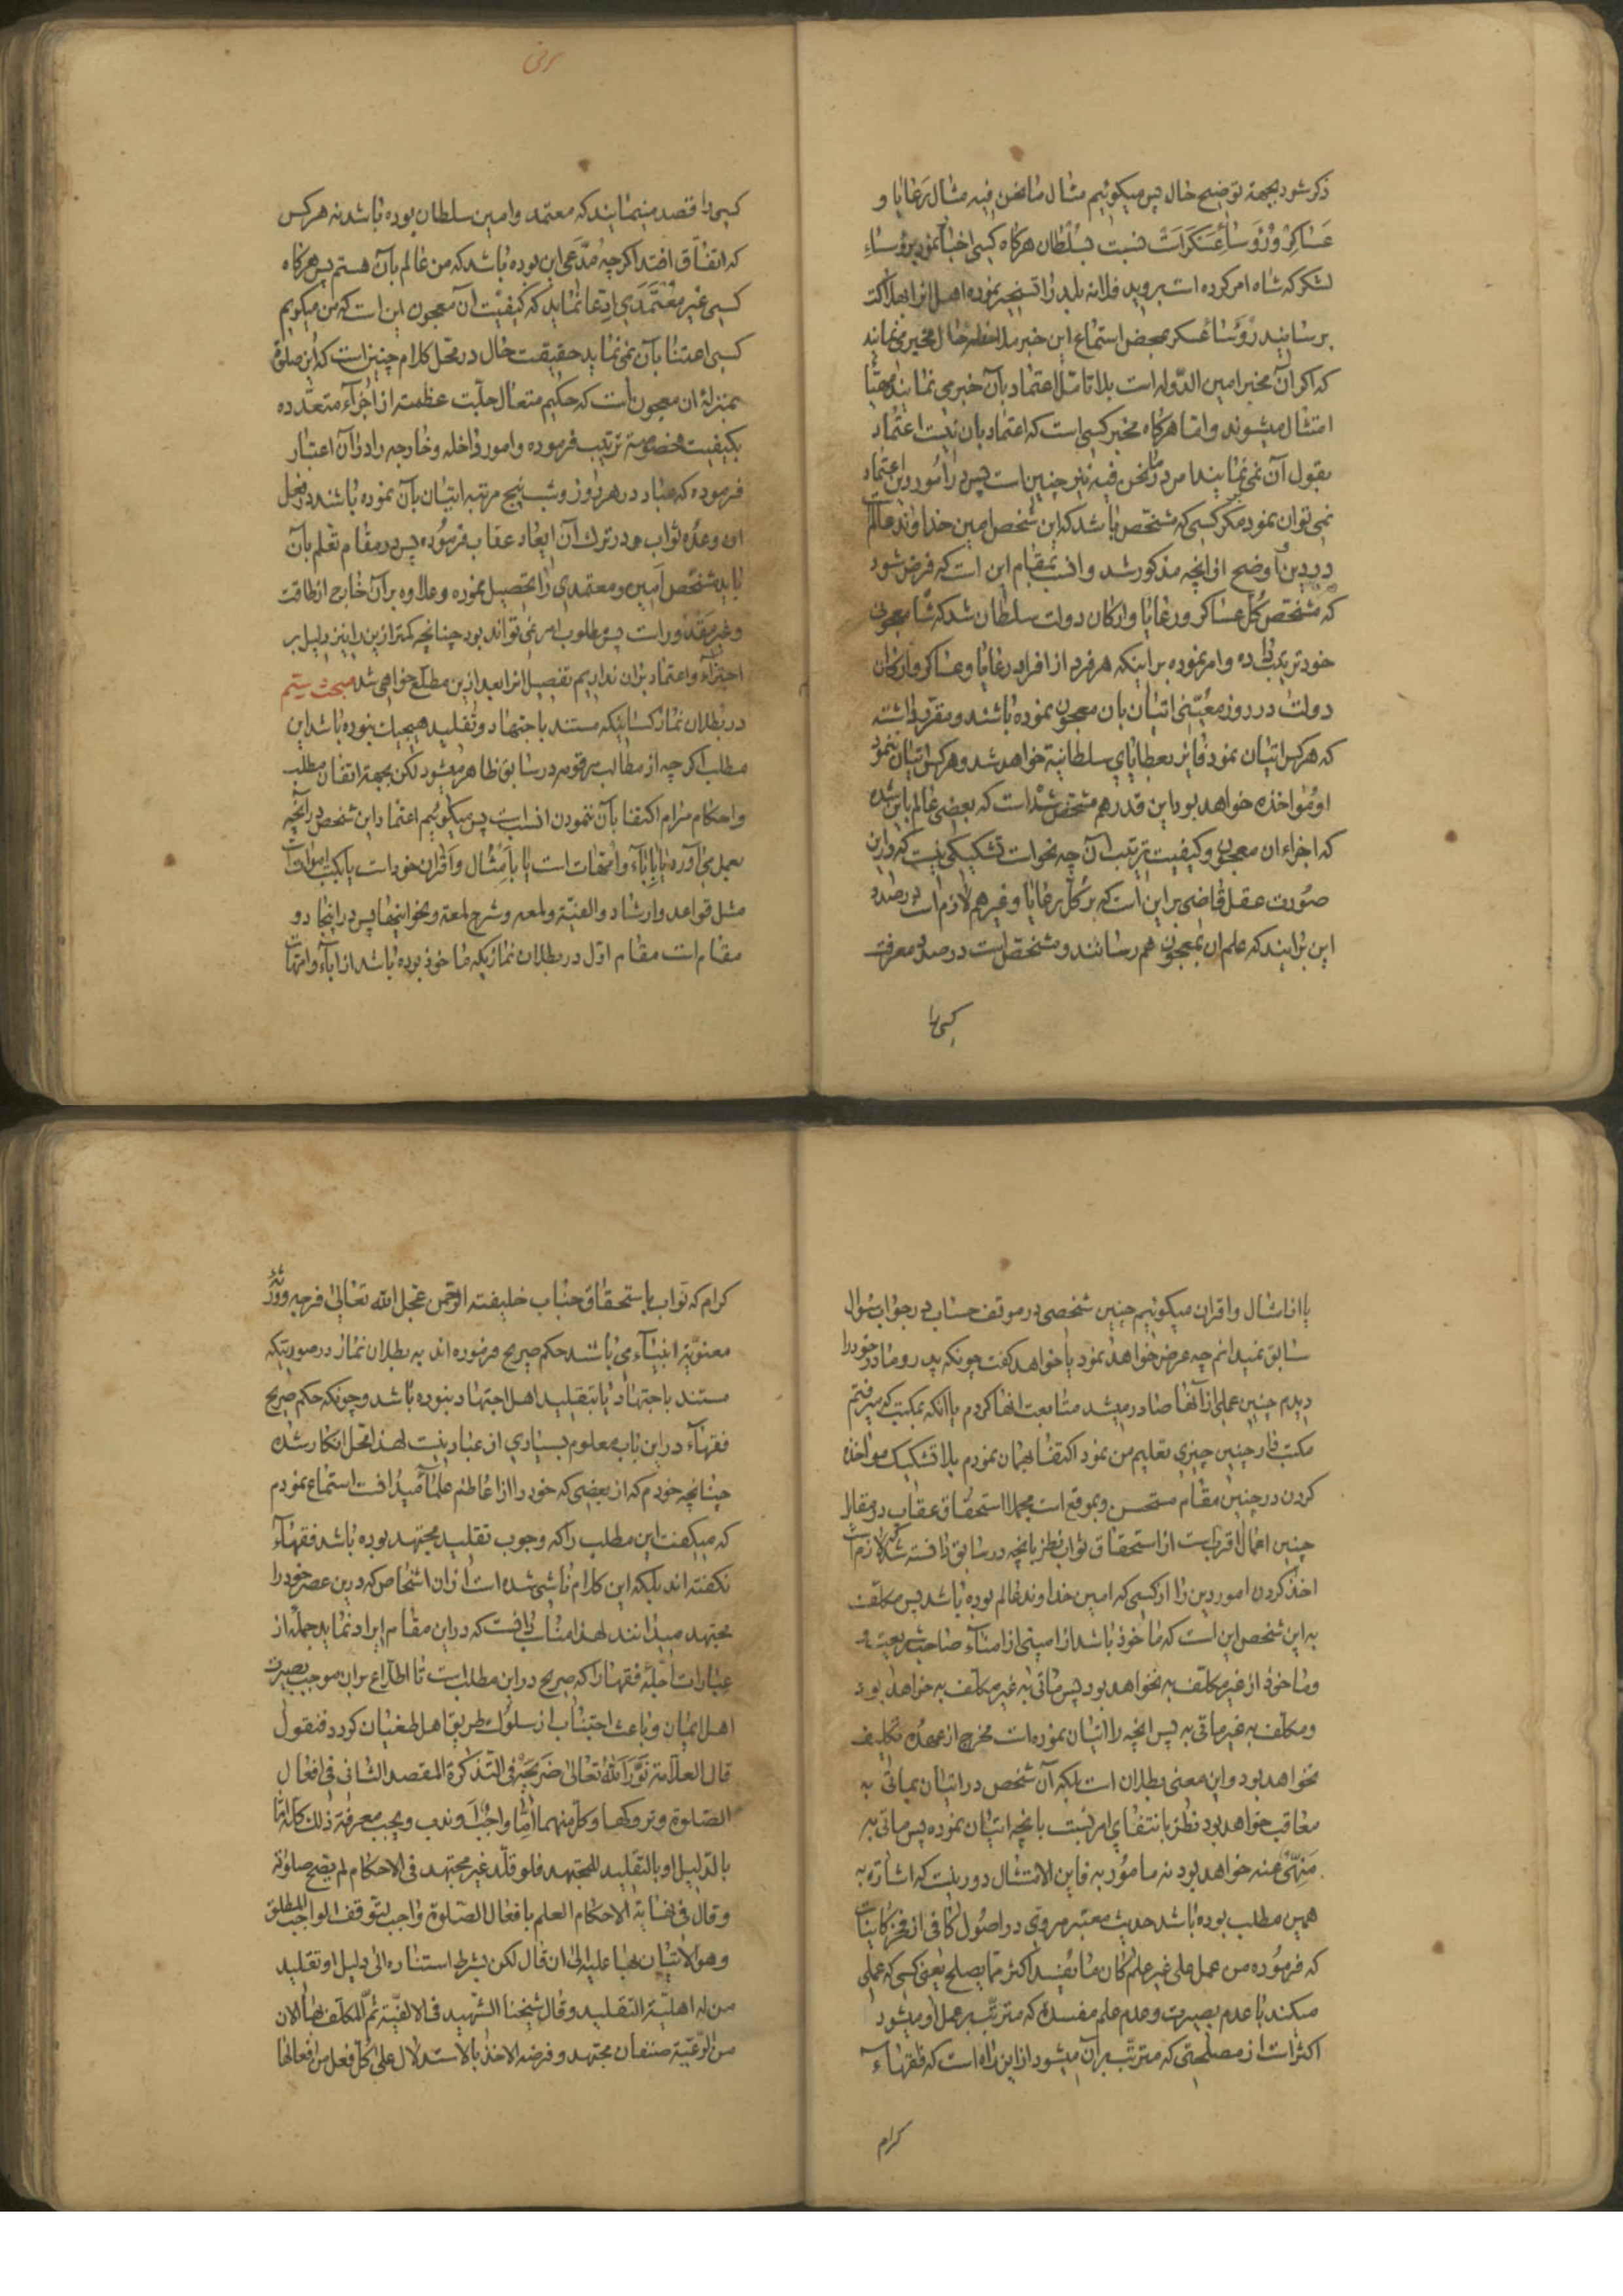 ذکر شود بجهة توضیح حال پس میکوئیم مثال ما نحن فیه مثال رعایا و
عساکر و رؤساء عسکر است نسبت بسلطان هرکاه کسی اخبار نمود برؤساء
لشکر که شاه امر کرده است بروید فلانه بلد را تسخیر نموده اهل انرا بهلاکت
برسانید رؤساء عسکر بمحض استماع این خبر ملاحظه حال مخبر می نمایند
که اکر آن مخبر امین الدوله است بلا تامل اعتماد بآن خبر می نمایند مهیّا
امتثال میشوند و اما هرکاه مخبر کسی است که اعتماد بان نیست اعتماد
بقول آن نمی نمایند امر در ما نحن فیه نیز چنین است پس در امور دین اعتماد
نمی توان نمود مکر کسی که مشخّص باشد که این شخص امین خداوند عالم است
در دین و اوضح از انچه مذکور شد و انسب بمقام این است که فرض شود
که مشخّص کل عساکر و رعایا و ارکان دولت سلطان شد که شاه معجونی
خود ترتیب داده و امر نموده بر اینکه هر فرد از افراد رعایا و عساکر و ارکان
دولت در روز معیّنی اتیان بان معجون نموده باشند و مقرر داشته
که هر کس اتیان نمود فایز بعطایای سلطانیة خواهد شد و هر کس اتیان ننمود
او مؤاخذه خواهد بود این قدر هم مشخص شده است که بعضی عالم باین شده
که اجزاء ان معجون و کیفیت ترتیب آن چه نحو است تشکیکی نیست که در این
صورت عقل قاضی بر این است که بر کل رعایا و غیر هم لازم است در صدد
این برایند که علم ان بمعجون هم رسانند و مشخّص است در صدد معرفت
کسی را
کسی را قصد مینمایند که معتمد و امین سلطان بوده باشد نه هر کس
که اتفاق افتد اکرچه مدّعی این بوده باشد که من عالم بآن هستم پس هرکاه
کسی غیر معتمدی ادعا نماید که کیفیت آن معجون این است که من میکویم
کسی اعتنا بآن نمی نماید حقیقت حال در محل کلام چنین است که این صلوة
بمنزلهٔ ان معجون است که حکیم متعال جلّت عظمته از اجزآء متعدّده
بکیفیت مخصوصة ترتیب فرموده و امور داخله و خارجه را در آن اعتبار
فرموده که عباد در هر روز و شب پنج مرتبه اتیان بآن نموده باشند در فعل
ان وعدهٔ ثواب و در ترک آن ایعاد عقاب فرموده پس در مقام تعلم بآن
باید شخص امین و معتمدی را تحصیل نموده و علاوه بر آن خارج از طاقت
و غیر مقدور است پس مطلوب امر نمی تواند بود چنانچه کمتر ازین را نیز دلیل بر
اجتزآء و اعتماد بر ان نداریم تفصیل انرا بعد ازین مطّلع خواهی شد مبحث ستیم
در بطلان نماز کسانیکه مستند باجتهاد و تقلید هیچیک نبوده باشد این
مطلب اکرچه از مطالب مرقومه در سابق ظاهر میشود لکن بجهة اتقان مطلب
و احکام مرام اکتفا بآن ننمودن انسب است پس میکوئیم اعتماد این شخص در آنچه
بعمل می آورد یا بآبآء و امهات است یا بامثال و اقران خود است یا بکتب اموات
مثل قواعد و ارشاد و الفیّة و لمعه و شرح لمعة و نحو اینها پس در اینجا دو
مقام است مقام اول در بطلان نمازیکه ماخوذ بوده باشد از ابآء و امهات
یا از امثال و اقران میکوئیم چنین شخصی در موقف حساب در جواب سؤال
سابق نمیدانم چه عرض خواهد نمود یا خواهد کفت چونکه پدر و مادر خود را
دیدم چنین عملی از آنها صادر میشد متابعت انها کردم یا انکه بمکتب که میرفتم
مکتب دار چنین چیزی تعلیم من نمود اکتفا بهمان نمودم بلا تشکیک مواخذه
کردن در چنین مقام مستحسن و بموقع است مجملا استحقاق عقاب در مقابل
چنین اعمال اقرب است از استحقاق ثواب نظر بانچه در سابق دانسته شد که لازم است
اخذ کردن امور دین را از کسی که امین خداوند عالم بوده باشد پس مکلّف
به این شخص این است که ماخوذ باشد از امینی از امنآء صاحب شریعت و
و ماخوذ از غیر مکلّف به نخواهد بود پس ماتی به غیر مکلّف به خواهد بود
و مکلّف به غیر ماتی به پس انچه را اتیان نموده است مخرج از عهدهٔ تکلیف
نخواهد بود و این معنی بطلان است بلکه آن شخص در اتیان بماتی به
معاقب خواهد بود نظر بانتفاء امر نسبت بانچه اتیان نموده پس ماتی به
منهیٌ عنه خواهد بود نه مامور به فاین الامتثال دور نیست که اشاره به
همین مطلب بوده باشد حدیث معتبر مروی در اصول کافی از فخر کاینات
که فرموده من عمل علی غیر علم کان ما یفسد اکثر مما یصلح یعنی کسی که عملی
میکند با عدم بصیرت و عدم علم مفسدهٔ که مترتّب بر عمل او میشود
اکثر است از مصلحتی که مترتّب بر آن میشود از این راه است که فقهاء
کرام
کرام که نواب باستحقاق جناب خلیفته الرحمن عجل الله تعالی فرجه و ورثهٔ
معنویّهٔ انبیآء می باشند حکم صریح فرموده اند به بطلان نماز در صورتیکه
مستند باجتهاد یا بتقلید اهل اجتهاد نبوده باشد و چونکه حکم صریح
فقهآء در این باب معلوم بسیاری از عباد نیست لهذا محل انکار شده
چنانچه خودم که از بعضی که خود را از اعاظم علمآء میدانست استماع نمودم
که میکفت این مطلب را که وجوب تقلید مجتهد بوده باشد فقهآء
نکفته اند بلکه این کلام ناشی شده است از ان اشخاص که درین عصر خود را
مجتهد میدانند لهذا مناسب دانست که در این مقام ایراد نماید جملهٔ از
عبارات اجلّهٔ فقها را که صریح در این مطلب است تا اطلاع بر ان موجب بصیرت
اهل ایمان و باعث اجتناب از سلوک طریق اهل طغیان کردد فنقول
قال العلامة نوّر الله تعالی ضریحه فی التذکرة المقصد الثانی فی افعال
الصّلوة و تروکها و کل منهما امّا واجب او ندب و یجب معرفة ذلک کله امّا
بالدّلیل او بالتقلید للمجتهد فلو قلّد غیر مجتهد فی الاحکام لم یصح صلوته
و قال فی نهایة الاحکام العلم بافعال الصّلوة واجب لتوقف الواجب المطلق
و هو الاتیان بها علیه الی ان قال لکن بشرط استناده الی دلیل او تقلید
من له اهلیّة التقلید و قال شیخنا الشّهید فی الالفیّة ثمّ المکلف بها الان
من الرّعیّة صنفان مجتهد و فرضه الاخذ بالاستدلال علی کل فعل من افعالها